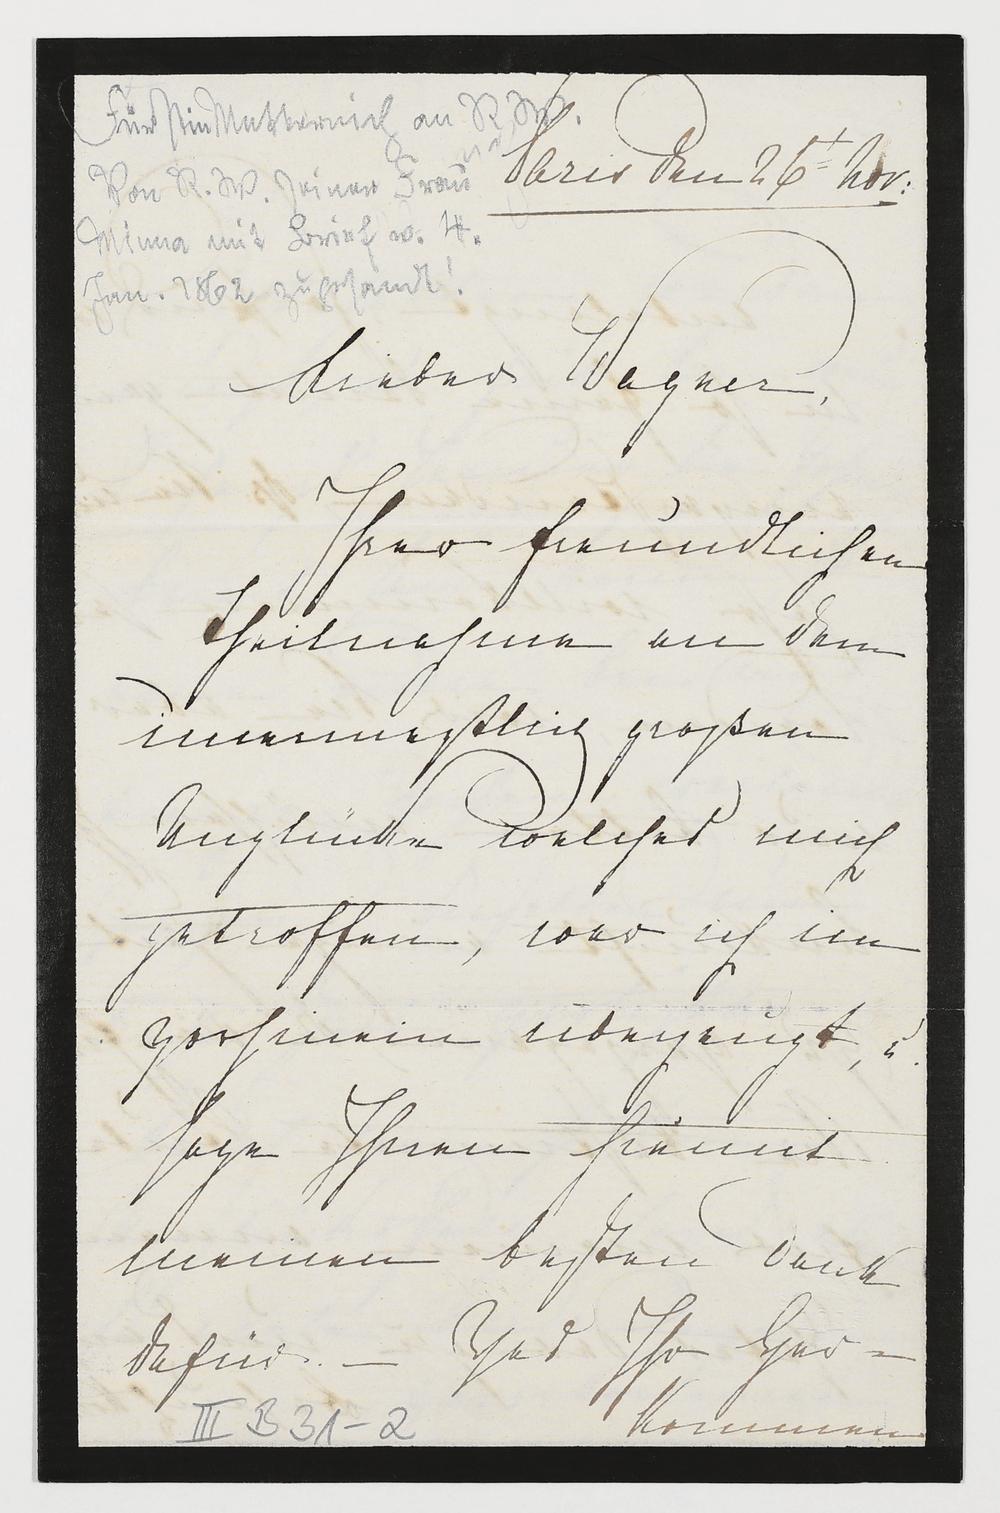 Fürstin Metternich an R. W.
Von R. W. seiner Frau
Minna mit Brief v. 4.
Jan. 1862 zugesandt!
Paris den 26t Nov:
Lieber Wagner,
Ihrer freundlichen
Theilnahme an dem
unermeßlich großen
Unglücke welches mich
getroffen, war ich im
vorhinein überzeugt, u.
sage Ihnen hiemit
meinen besten Dank
dafür. — Was Ihr Her=
kommen
III B 31-2